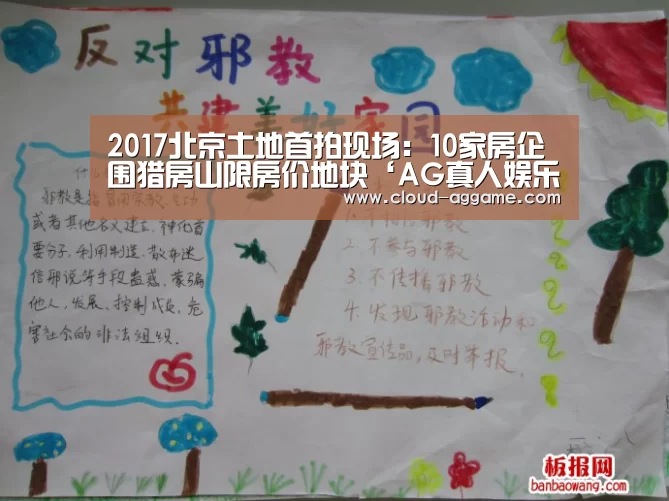 反对邪教
共建美好家园
2017北京土地首拍现场：10家房企
围猎房山限房价地块‘AG真人娱乐
www.cloud-aggame.com
邪教是指冒用宗教、气功
或者其他名义建立、神化首
要分子,利用制造、散布迷
信邪说等手段蛊惑、蒙骗
他人,发展、控制成员,危
害社会的非法组织.
2 不参与邪教
3. 不传播邪教
4. 发现邪教活动和
邪教宣传品,及时举报.
板报网
banbaowang.com